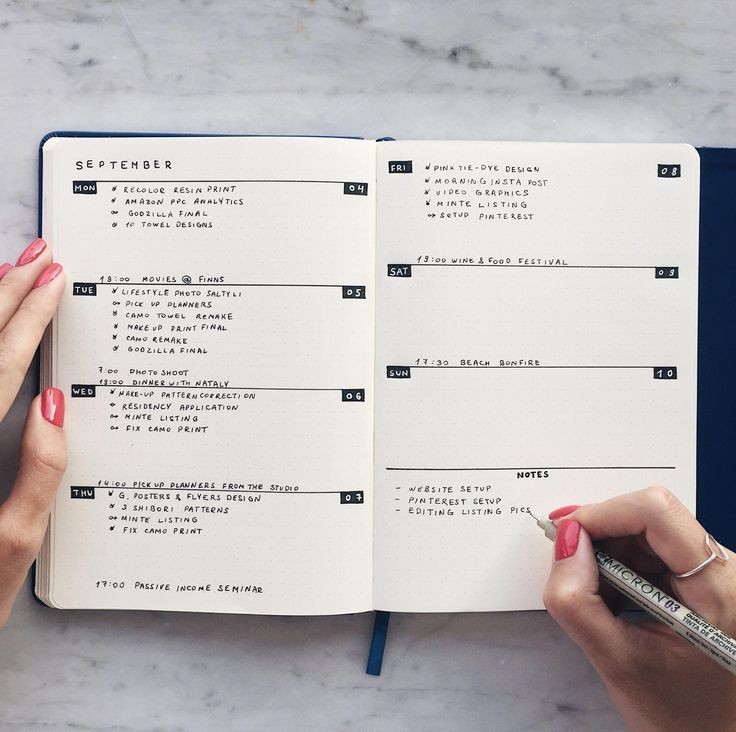 SEPTEMBER
MON 04
RECOLOR RESIN PRINT
AMAZON PPC ANALYTICS
GODZILLA FINAL
10 TOWEL DESIGNS
19:00 MOVIES @ FINNS
TUE 05
LIFESTYLE PHOTO SALTYLI
PICK UP PLANNERS
CAMO TOWEL REMAKE
MAKE UP PRINT FINAL
CAMO REMAKE
GODZILLA FINAL
7:00 PHOTO SHOOT
19:00 DINNER WITH NATALY
WED 06
MAKE-UP PATTERN CORRECTION
RESIDENCY APPLICATION
MINTE LISTING
FIX CAMO PRINT
14:00 PICK UP PLANNERS FROM THE STUDIO
THU 07
G. POSTERS & FLYERS DESIGN
3 SHIBORI PATTERNS
MINTE LISTING
FIX CAMO PRINT
17:00 PASSIVE INCOME SEMINAR
FRI 08
PINK TIE-DYE DESIGN
MORNING INSTA POST
VIDEO GRAPHICS
MINTE LISTING
SETUP PINTEREST
19:00 WINE & FOOD FESTIVAL
SAT 09
17:30 BEACH BONFIRE
SUN 10
NOTES
- WEBSITE SETUP
- PINTEREST SETUP
- EDITING LISTING PICS
MICRON 03
TINTA DE ARCHIVE